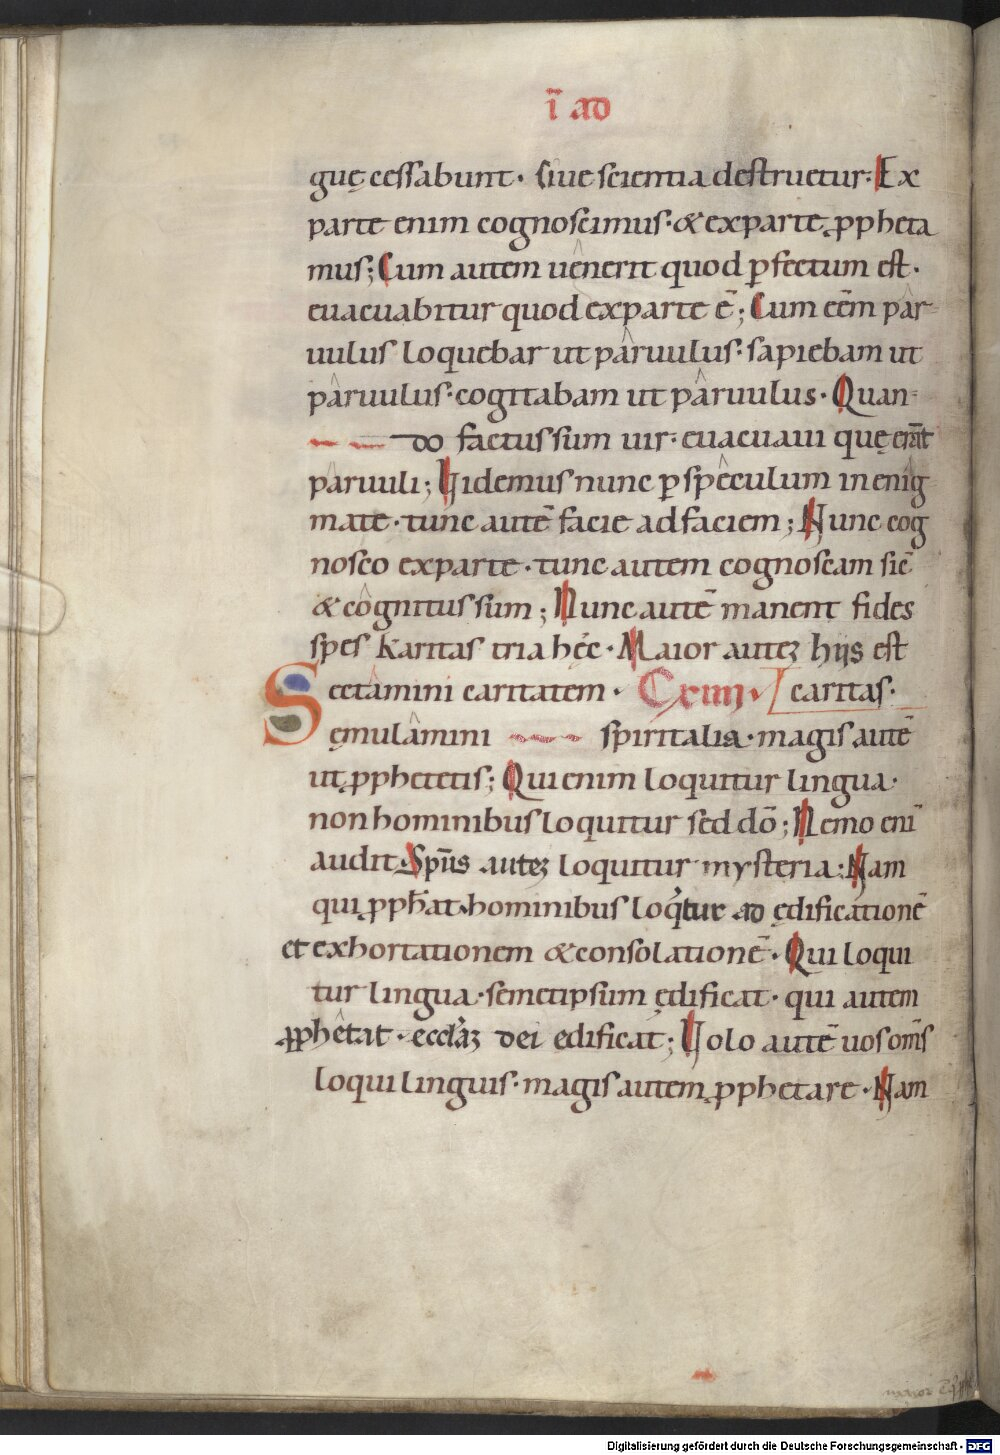 ī ad
guę cessabunt· siue scientia destruetur· Ex
parte enim cognoscimus· & exparte ꝓpheta
mus; Cum autem uênerit quod ꝑfectum est·
euacuabitur quod exparte ē; Cum eēm pâr-
uulus loquebar ut pâruulus· sapiebam ut
pâruulus· cogitabam ut pâruulus· Quan-
do factus sum uir· euacuaui quę erāt
pâruuli; Uidemus nunc ꝑ spêculum in enîg
mate· tunc autē facie ad faciem; Nunc cog
nosco exparte· tunc autem cognoscam sic̄
& côgnitus sum; Nunc autē manent fides
spes karitas tria hęc· Maior autēz hijs est
Sectâmini caritatem· Cxiiij· caritas·
ęmulâmini spiritalia· magis autē
ut ꝓphetetis; Qui enim loquitur lingua·
non hominibus loquitur sed dō; Nemo enī
audit· Spūs autez loquitur mysteria; Nam
qui ꝓph̄at· hominibus loq̇tur ad ędificationē
et exhortationem & consolationē· Qui loqui
tur lingua· semetipsum ędificat· qui autem
ꝓphêtat· eccl̓az dei edificat; Uolo autē uos om̄s
loqui linguis· magis autem ꝓphetare· Nam
Digitalisierung gefördert durch die Deutsche Forschungsgemeinschaft - DFG